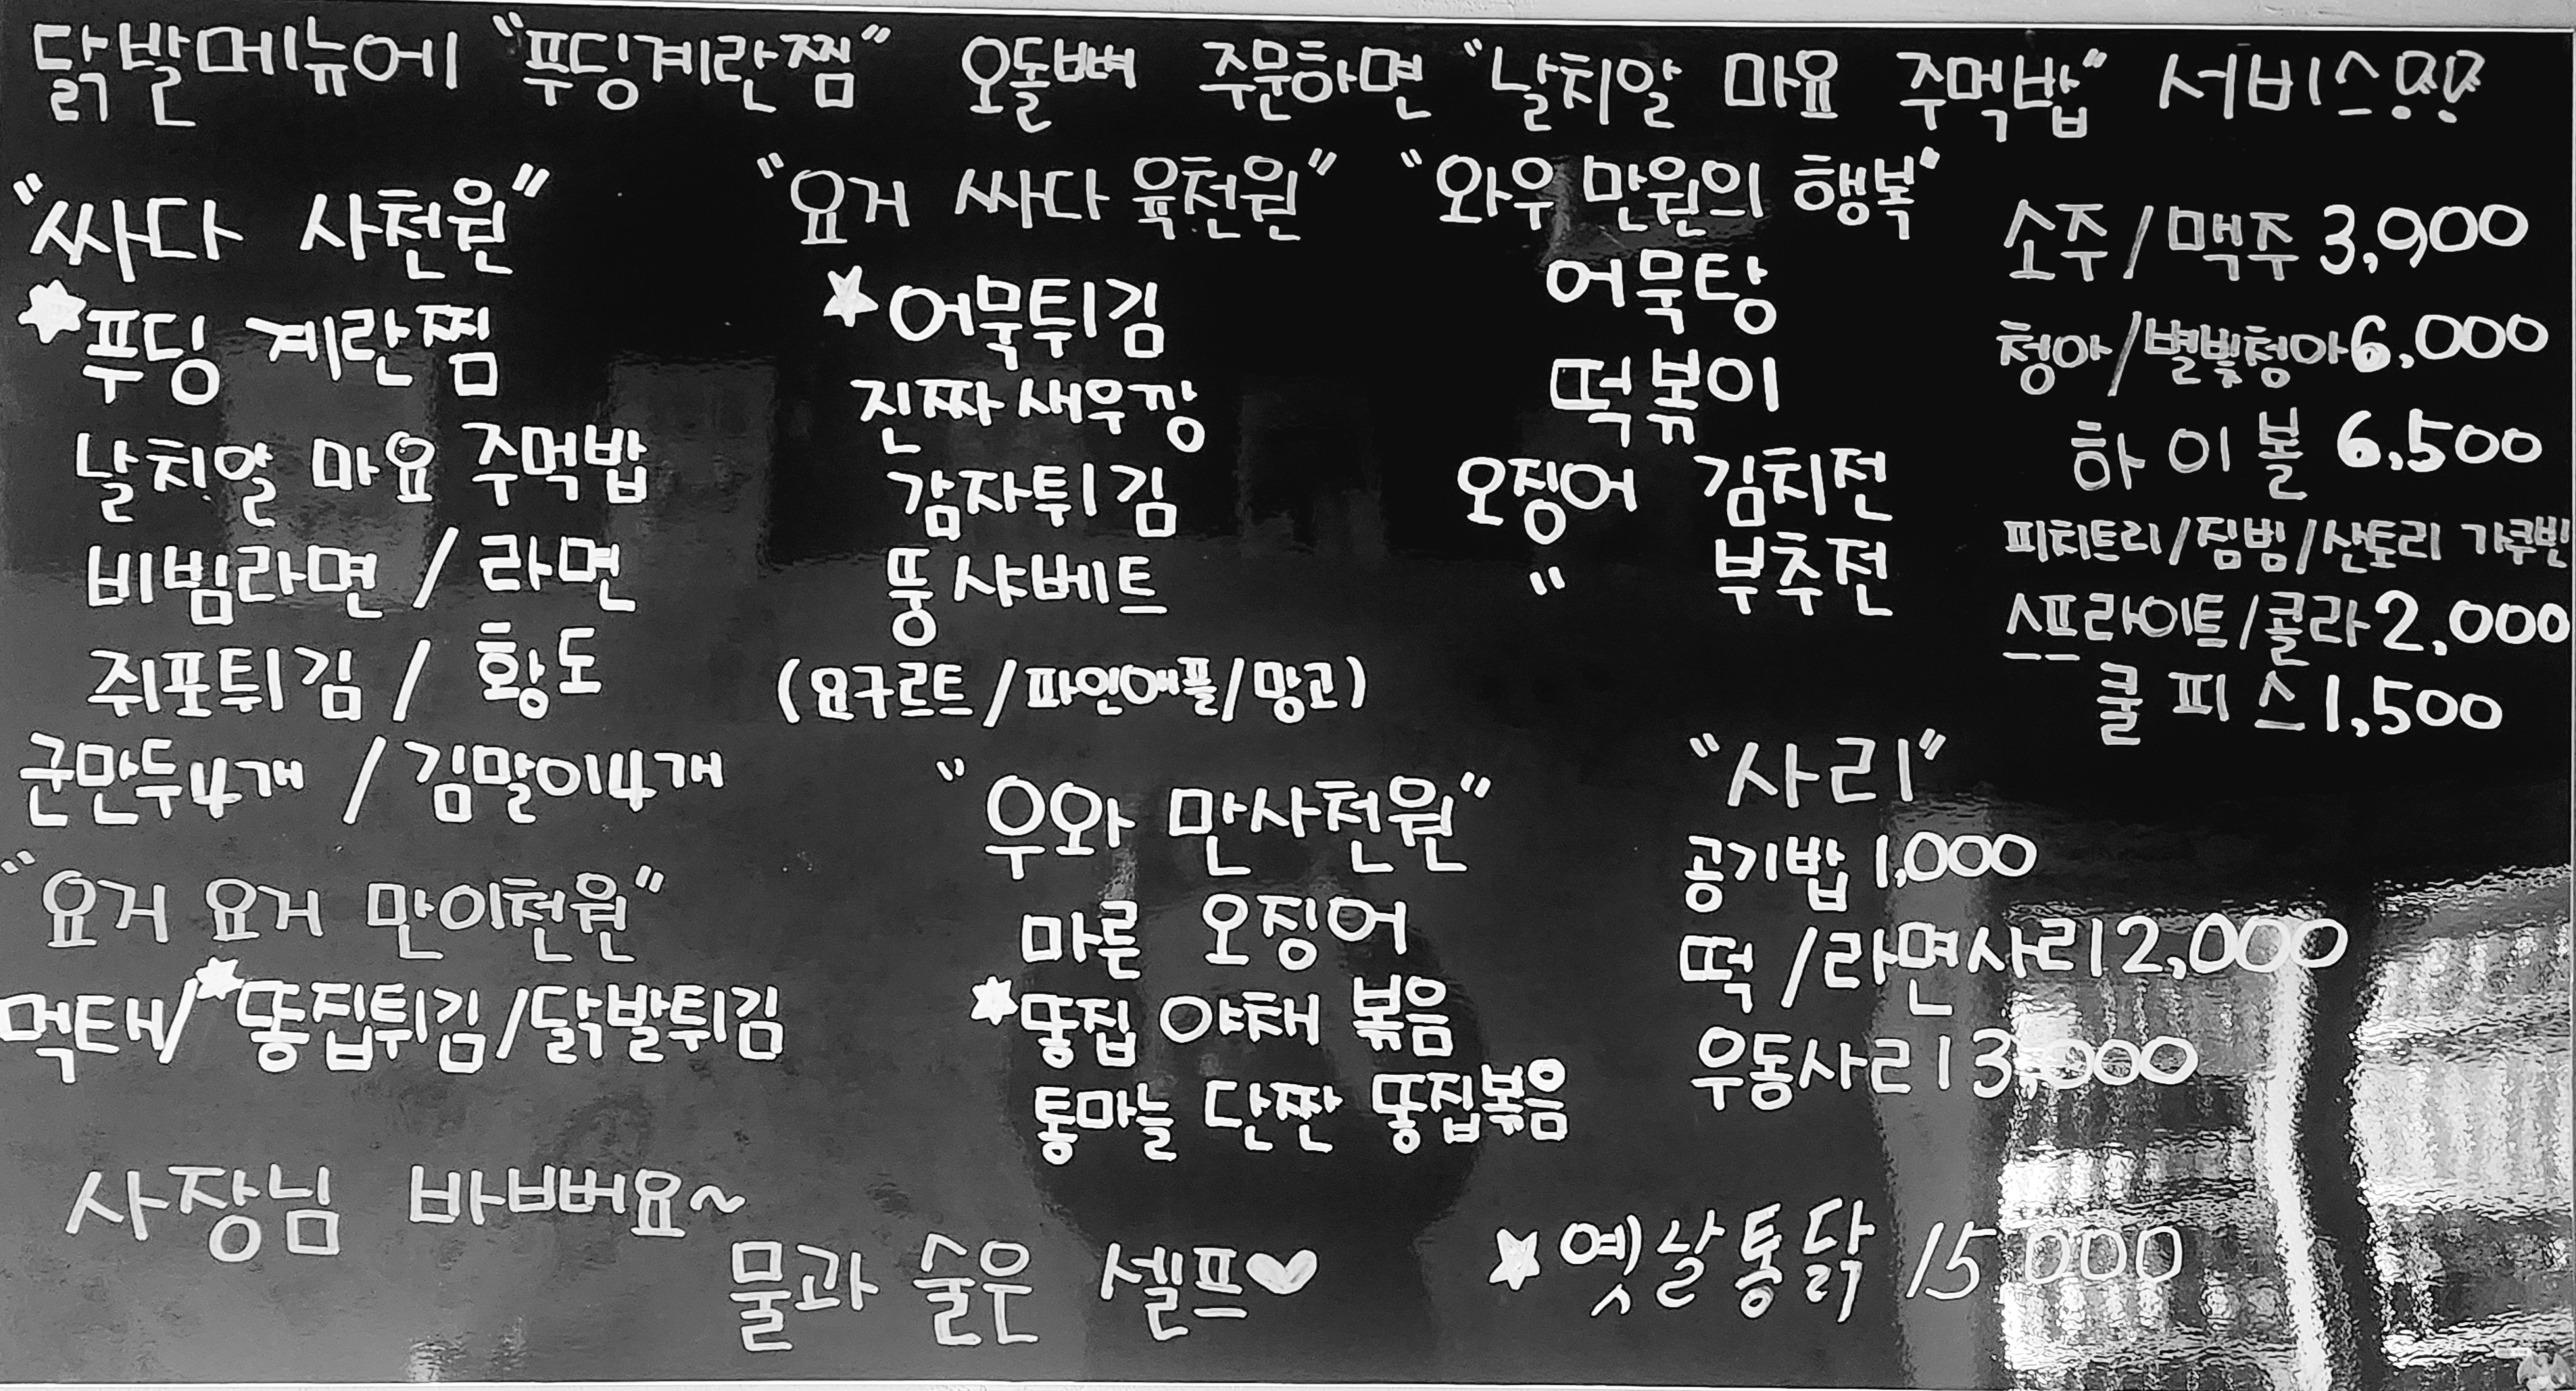 닭발메뉴에 "푸딩계란찜" 오돌뼈 주문하면 "날치알 마요 주먹밥" 서비스!?!?
"싸다 사천원"
★푸딩 계란찜
날치알 마요 주먹밥
비빔라면 / 라면
쥐포튀김 / 황도
군만두4개 / 김말이4개
"요거 요거 만이천원"
먹태/★똥집튀김/닭발튀김
"요거 싸다 육천원"
★어묵튀김
진짜새우깡
감자튀김
뚱샤베트
(요구르트/파인애플/망고)
"우와 만사천원"
마른 오징어
★똥집 야채 볶음
통마늘 단짠 똥집볶음
"와우 만원의 행복"
어묵탕
떡볶이
오징어 김치전
" 부추전
소주/맥주 3,900
청하/별빛청하 6,000
하이볼 6,500
피치트리/짐빔/산토리 가쿠빈
스프라이트/콜라 2,000
쿨피스 1,500
"사리"
공기밥 1,000
떡/라면사리 2,000
우동사리 3,000
★옛날통닭 15,000
사장님 바뻐요~
물과 술은 셀프♥